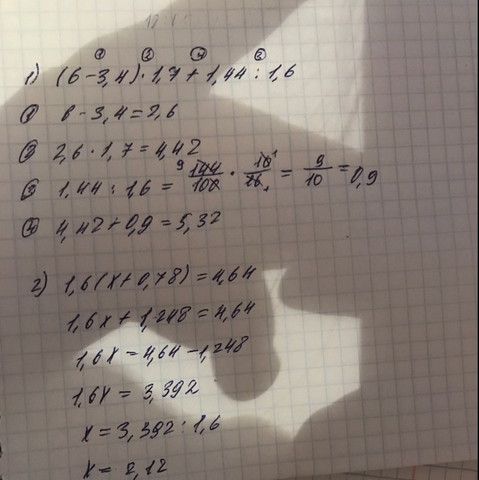 ① ③ ④ ②
1) (6-3,4)·1,7+1,44:1,6
① 6-3,4=2,6
② 2,6·1,7=4,42
③ 1,44:1,6= 9 144/100 · 10 1/16 1 = 9/10 =0,9
④ 4,42+0,9=5,32
2) 1,6(x+0,78)=4,64
1,6x+1,248=4,64
1,6x=4,64-1,248
1,6x=3,392
x=3,392:1,6
x=2,12